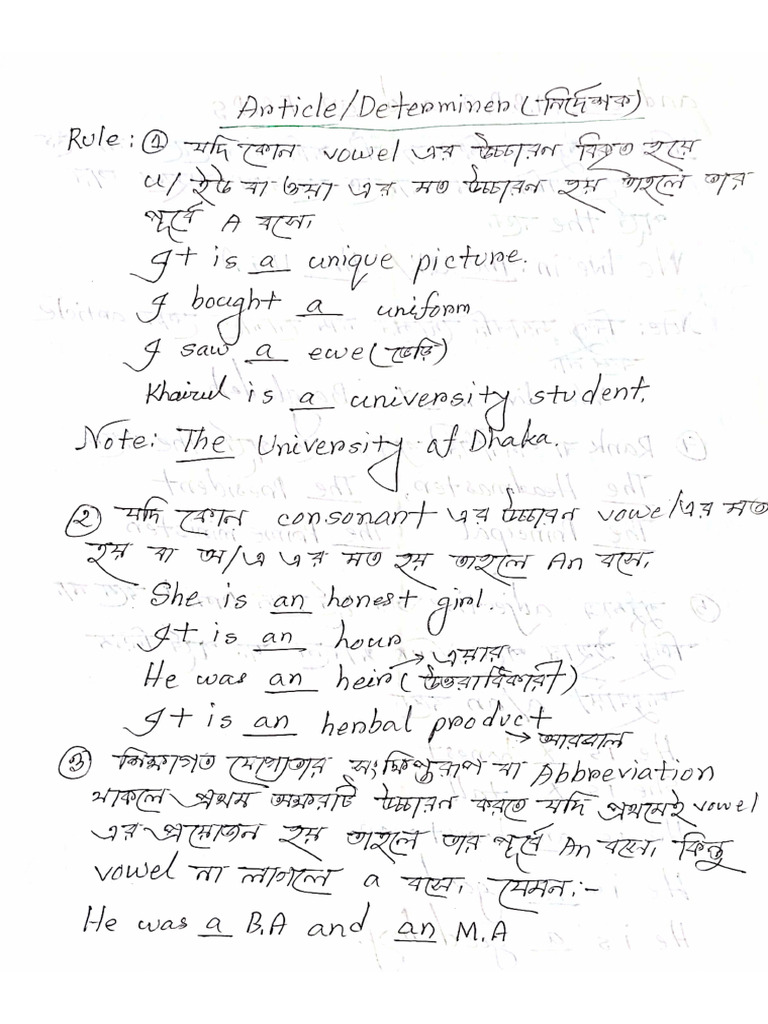 Article/Determiner (নির্দেশক)
Rule: ① যদি কোন vowel এর উচ্চারন বিকৃত হয়ে
u/ ইউ বা ওয়া এর মত উচ্চারন হয় তাহলে তার
পূর্বে A বসে।
It is a unique picture.
I bought a uniform
I saw a ewe (ভেড়ি)
Khairul is a university student.
Note: The University of Dhaka.
② যদি কোন consonant এর উচ্চারন vowel এর মত
হয় বা অ/এ এর মত হয় তাহলে An বসে।
She is an honest girl.
It is an hour
→ এয়ার
He was an heir (উত্তরাধিকারী)
It is an herbal product
→ আরবাল
③ শিক্ষাগত যোগ্যতার সংক্ষিপ্তরূপ বা Abbreviation
থাকলে প্রথম অক্ষরটি উচ্চারন করতে যদি প্রথমেই vowel
এর প্রয়োজন হয় তাহলে তার পূর্বে An বসে। কিন্তু
vowel না লাগলে a বসে। যেমন:-
He was a B.A and an M.A